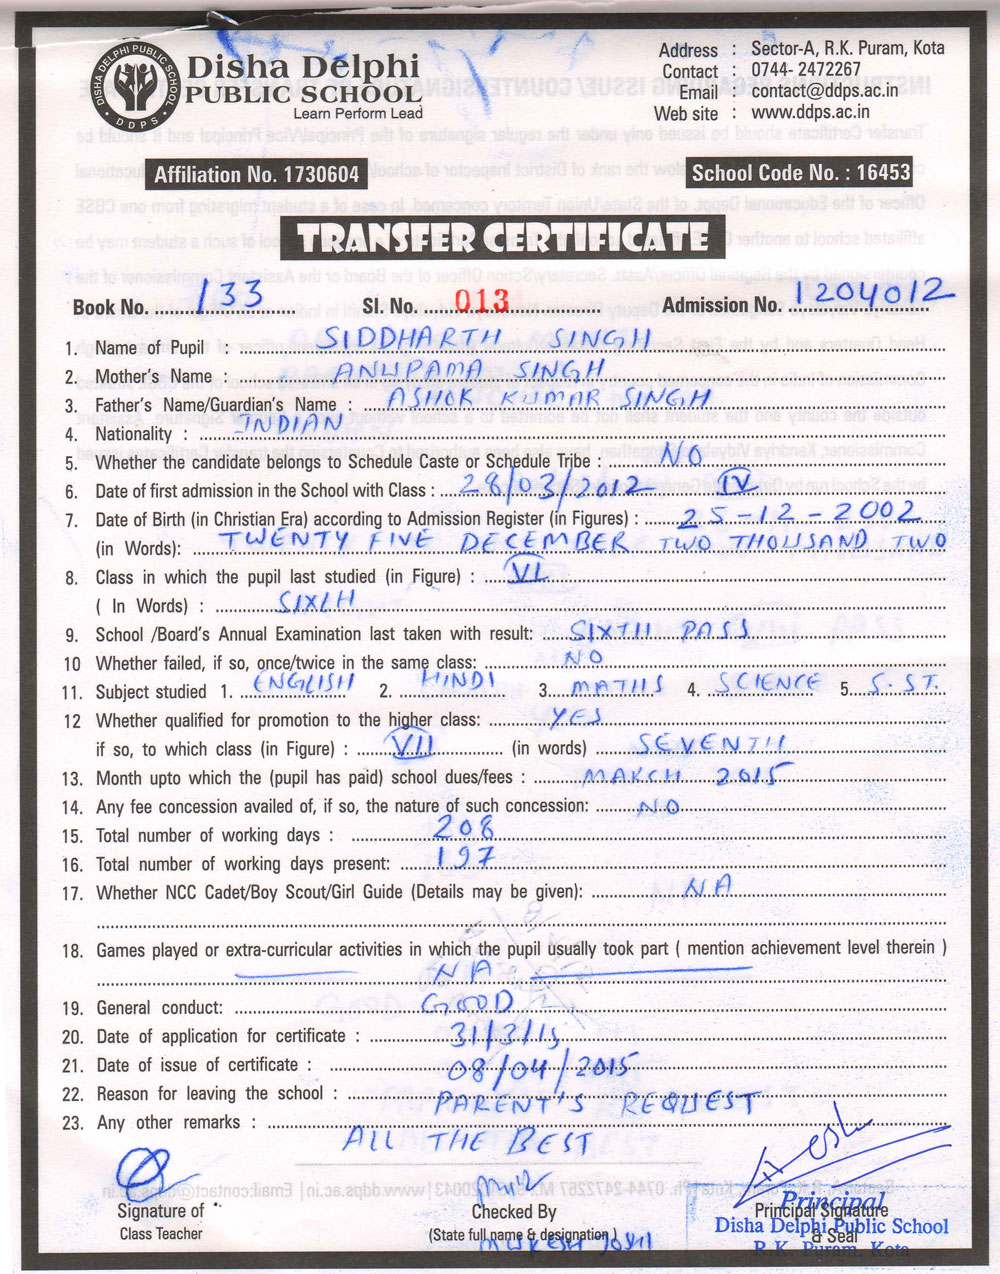 Disha Delphi
PUBLIC SCHOOL
Learn Perform Lead
DISHA DELPHI PUBLIC SCHOOL
DDPS
Address : Sector-A, R.K. Puram, Kota
Contact : 0744- 2472267
Email : contact@ddps.ac.in
Web site : www.ddps.ac.in
Affiliation No. 1730604
School Code No. : 16453
TRANSFER CERTIFICATE
Book No. 133 Sl No. 013 Admission No. 1204012
1. Name of Pupil : SIDDHARTH SINGH
2. Mother's Name : ANUPAMA SINGH
3. Father's Name/Guardian's Name : ASHOK KUMAR SINGH
4. Nationality : INDIAN
5. Whether the candidate belongs to Schedule Caste or Schedule Tribe : NO
6. Date of first admission in the School with Class : 28/03/2012 IV
7. Date of Birth (in Christian Era) according to Admission Register (in Figures) : 25-12-2002
(in Words): TWENTY FIVE DECEMBER TWO THOUSAND TWO
8. Class in which the pupil last studied (in Figure) : VI
( In Words) : SIXTH
9. School /Board's Annual Examination last taken with result: SIXTH PASS
10 Whether failed, if so, once/twice in the same class: NO
11. Subject studied 1. ENGLISH 2. HINDI 3. MATHS 4. SCIENCE 5. S.ST.
12 Whether qualified for promotion to the higher class: YES
if so, to which class (in Figure) : VII (in words) SEVENTH
13. Month upto which the (pupil has paid) school dues/fees : MARCH 2015
14. Any fee concession availed of, if so, the nature of such concession: NO
15. Total number of working days : 208
16. Total number of working days present: 197
17. Whether NCC Cadet/Boy Scout/Girl Guide (Details may be given): NA
18. Games played or extra-curricular activities in which the pupil usually took part ( mention achievement level therein )
NA
19. General conduct: GOOD
20. Date of application for certificate : 31/3/15
21. Date of issue of certificate : 08/04/2015
22. Reason for leaving the school : PARENT'S REQUEST
23. Any other remarks : ALL THE BEST
Signature of
Class Teacher
Checked By
(State full name & designation)
MUKESH JOSHI
Principal
Principal Signature
& Seal
Disha Delphi Public School
R.K. Puram, Kota